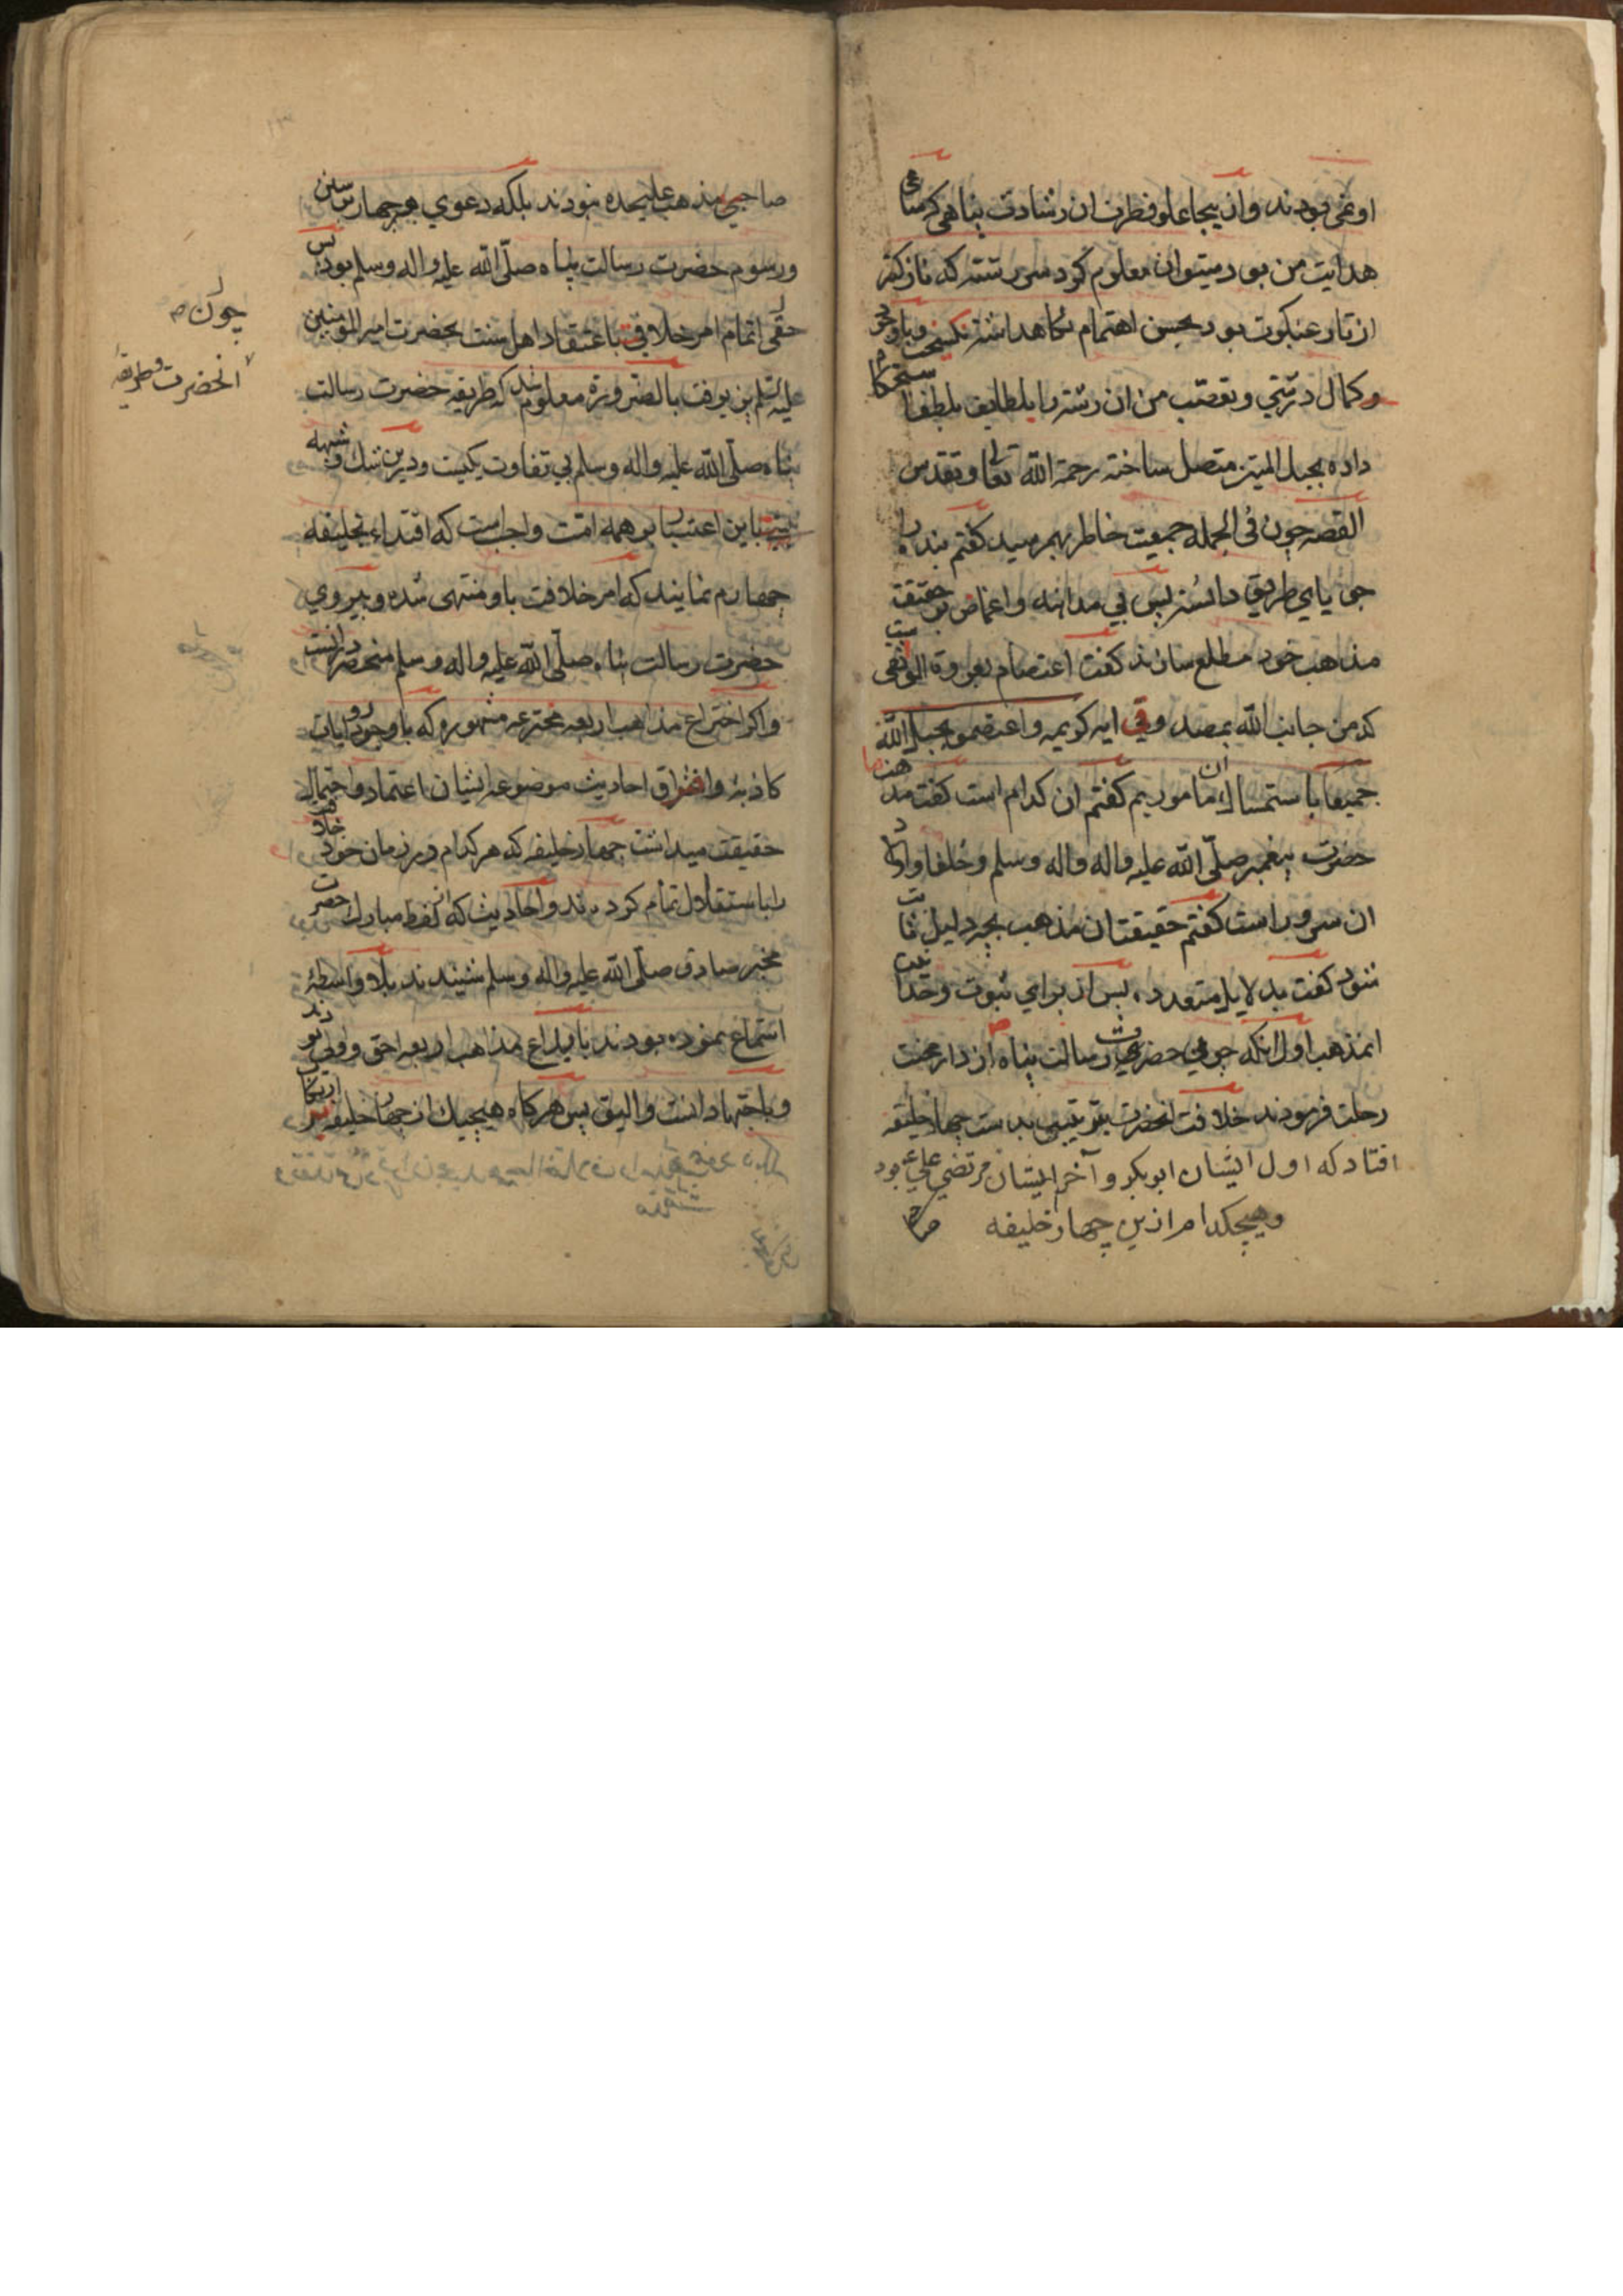 او نمی بودند و از ینجا علو فطرت ان رشادت پناهی که ساعی
هدایت من بود میتوان معلوم کرد سر رشته که نازکتر
از تار عنکبوت بود بحسن اهتمام نکاهداشته نکسیخت و با وجود
وکمال درشتی و تعصب من ان رشته را بلطایف بلطف استحکام
داده بحبل المتین متصل ساخته رحمة الله تعا و تقدس
القصه چون فی الجمله جمعیت خاطر بهم رسید کفتم بنده را
جویای طریق دانسته پس بی مداهنه و اغماض بر حقیقت
مذاهب خود مطلع سازند کفت اعتصام بعروة الوثقی
که من جانب الله بمصدوقی ایه کریمه واعتصموا بحبل الله
جمیعا باستمساك ان ماموریم کفتم ان کدام است کفت مذهب
حضرت پیغمبر صلّی الله علیه واله واله وسلم و خلفا و اولاد
ان سرور است کفتم حقیقت ان مذهب بچه دلیل ثابت
شود کفت بدلایل متعدده پس از برای ثبوت وحدانیت
انمذهب اول انکه چون حضرت رسالت پناه از دار محنت
رحلت فرمودند خلافت انحضرت بترتیبی بدست چهار خلیفه
افتاد که اول ایشان ابوبکر و آخر ایشان مرتضی علی ع بود
وهیچکدام ازین چهار خلیفه
صاحبی مذهب علیحده نبودند بلکه دعوی هر چهار سنن
ورسوم حضرت رسالت پناه صلّی الله علیه واله وسلم بود پس
چون
حقی اتمام امر خلافت باعتقاد اهل سنت بحضرت امیر المومنین
انحضرت وطریقه
علیه السلم پذیرفت بالضروره معلوم شد که طریقه حضرت رسالت
پناه صلّی الله علیه واله وسلم بی تفاوت یکیست ودرین شك وشبهه
نیست باین اعتبار بر همه امت واجب است که اقتداء بخلیفه
چهارم نمایند که امر خلافت باو منتهی شده وپیروی
حضرت رسالت پناه صلّی الله علیه واله وسلم منحصر در انست
واکر اختراع مذاهب اربعه مخترعه مشهوره که با وجود روایات
کاذبه وافتراق احادیث موضوعه ایشان اعتماد و احتمال
حقیقت میداشت چهار خلیفه که هر کدام در زمان خود خلافت
را باستقلال تمام کردند و احادیث که از لفظ مبارك حضرت
مخبر صادق صلّی الله علیه واله وسلم شنیدند بلا واسطه
استماع نموده بودند بابداع مذاهب اربعه احق و اولی بودند
وباجتهاد انسب والیق پس هرکاه هیچیك از چهار خلیفه